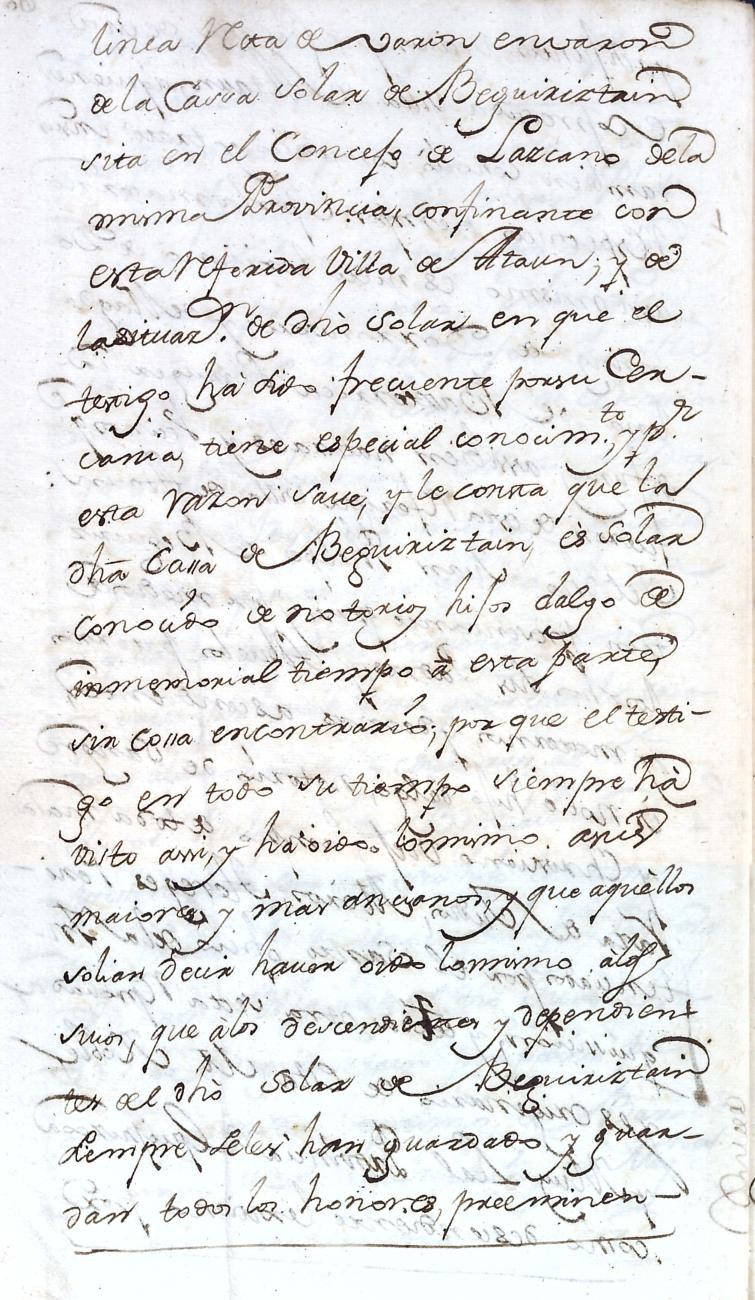 linea Recta de varon en varon
de la Cassa solar de Beguiriztain
sita en el Concejo de Lazcano dela
misma Provincia, confinante con
esta Referida Villa de Ataun; y de
la situaz.n de dho solar en que el
testigo ha sido frecuente por su Cer-
cania, tiene especial conocim.to, y p.r
esta razon save, y le consta que la
dha Cassa de Beguiriztain, es Solar
conocido de notorios hijos dalgo de
inmemorial tiempo à esta parte,
sin cossa en contrario; por que el testi-
go en todo su tiempo siempre hà
visto assi, y ha oido lo mismo asus
maiores y mas ancianos, y que aquellos
solian decir haver oido lo mismo alos
suios, que àlos descendientes y dependien
tes del dho Solar de Beguiriztain
siempre seles han guardado y guar-
dan todos los honores, preeminen-